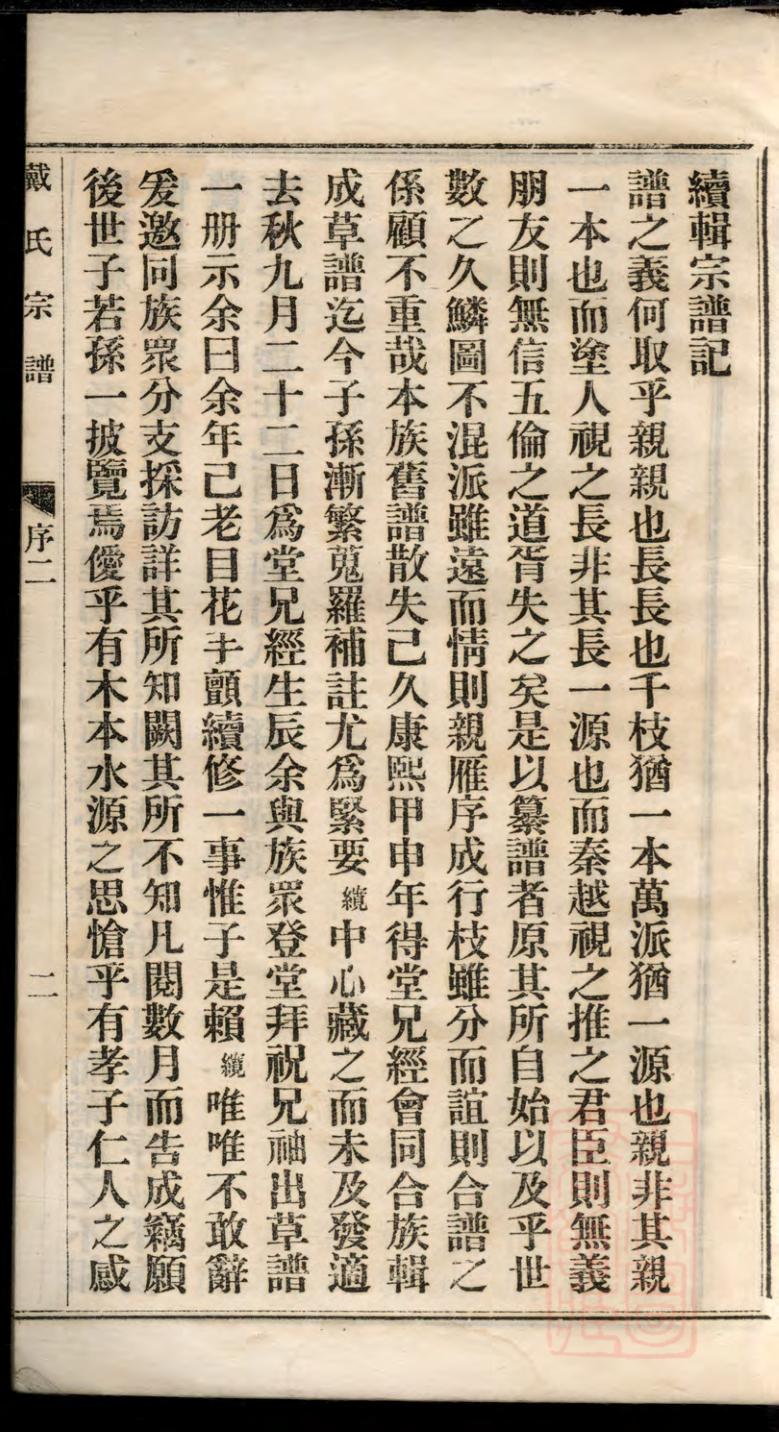 續輯宗譜記
譜之義何取乎親親也長長也千枝猶一本萬派猶一源也親非其親
一本也而塗人視之長非其長一源也而秦越視之推之君臣則無義
朋友則無信五倫之道胥失之矣是以纂譜者原其所自始以及乎世
數之久鱗圖不混派雖遠而情則親雁序成行枝雖分而誼則合譜之
係顧不重哉本族舊譜散失己久康熙甲申年得堂兄經會同合族輯
成草譜迄今子孫漸繁蒐羅補註尤爲緊要纘中心藏之而未及發適
去秋九月二十二日爲堂兄經生辰余與族眾登堂拜祝兄袖出草譜
一册示余曰余年己老目花手顫續修一事惟子是賴纘唯唯不敢辭
爰邀同族眾分支採訪詳其所知闕其所不知凡閱數月而告成竊願
後世子若孫一披覽焉優乎有木本水源之思愴乎有孝子仁人之感
戴氏宗譜
序二
二